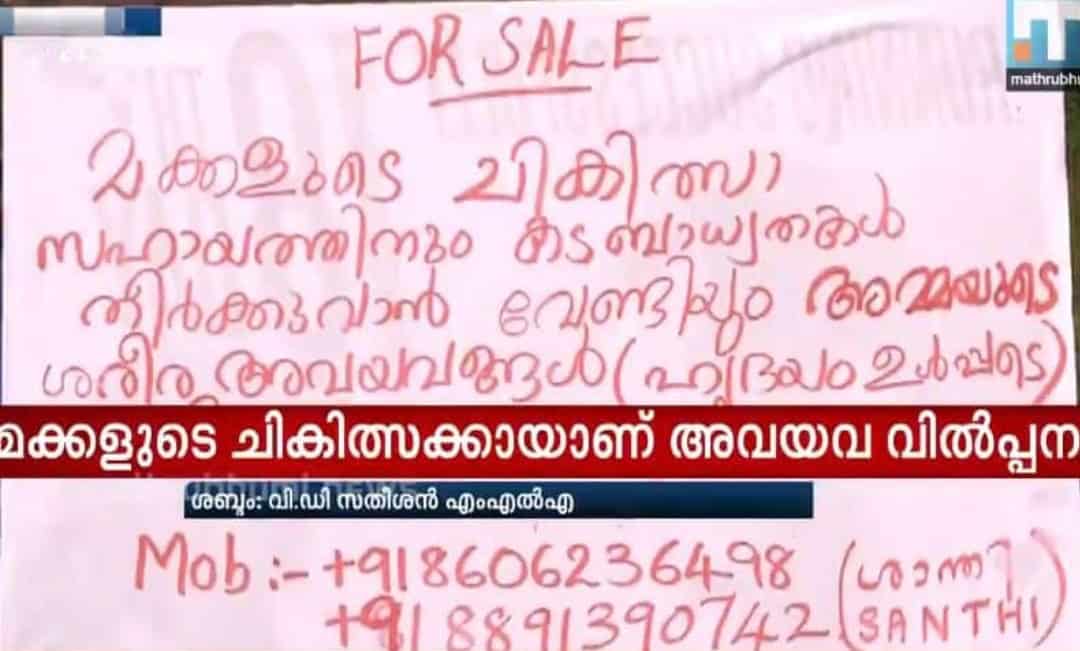 FOR SALE
mathrubhu
മക്കളുടെ ചികിത്സാ
സഹായത്തിനും കടബാധ്യതകൾ
തീർക്കുവാൻ വേണ്ടിയും അമ്മയുടെ
ശരീര അവയവങ്ങൾ (ഹൃദയം ഉൾപ്പടെ)
മക്കളുടെ ചികിത്സക്കായാണ് അവയവ വിൽപ്പന
ശബ്ദം: വി.ഡി സതീശൻ എംഎൽഎ
Mob :- +918606236498 (ശാന്തി
+918891390742 SANTHI)